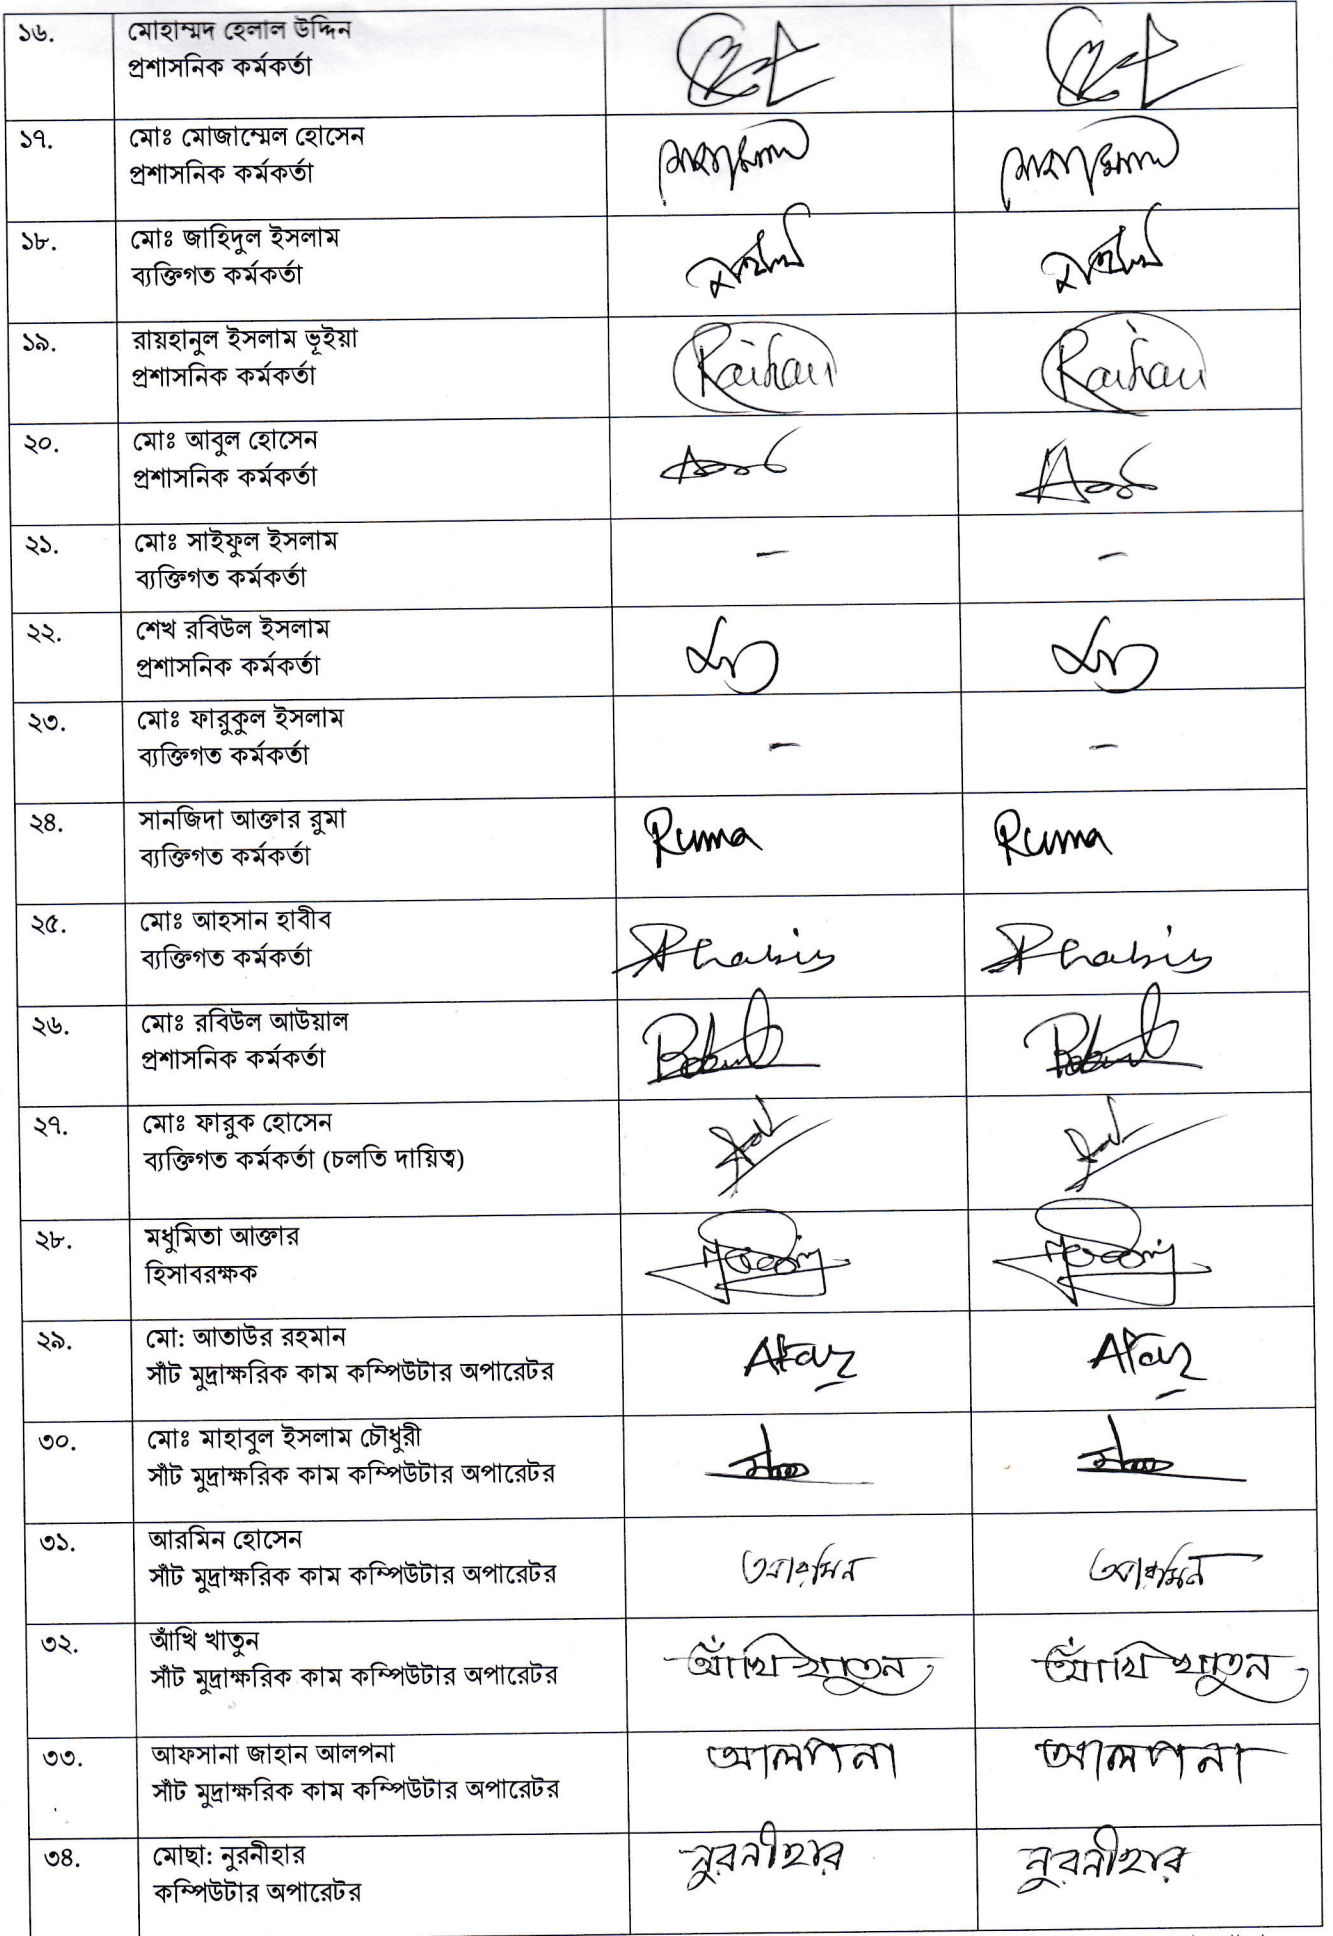 ১৬.
মোহাম্মদ হেলাল উদ্দিন
প্রশাসনিক কর্মকর্তা
১৭.
মোঃ মোজাম্মেল হোসেন
প্রশাসনিক কর্মকর্তা
১৮.
মোঃ জাহিদুল ইসলাম
ব্যক্তিগত কর্মকর্তা
১৯.
রায়হানুল ইসলাম ভূইয়া
প্রশাসনিক কর্মকর্তা
Raihan Raihan
২০.
মোঃ আবুল হোসেন
প্রশাসনিক কর্মকর্তা
২১.
মোঃ সাইফুল ইসলাম
ব্যক্তিগত কর্মকর্তা
- -
২২.
শেখ রবিউল ইসলাম
প্রশাসনিক কর্মকর্তা
২৩.
মোঃ ফারুকুল ইসলাম
ব্যক্তিগত কর্মকর্তা
- -
২৪.
সানজিদা আক্তার রুমা
ব্যক্তিগত কর্মকর্তা
Ruma Ruma
২৫.
মোঃ আহসান হাবীব
ব্যক্তিগত কর্মকর্তা
২৬.
মোঃ রবিউল আউয়াল
প্রশাসনিক কর্মকর্তা
২৭.
মোঃ ফারুক হোসেন
ব্যক্তিগত কর্মকর্তা (চলতি দায়িত্ব)
২৮.
মধুমিতা আক্তার
হিসাবরক্ষক
২৯.
মো: আতাউর রহমান
সাঁট মুদ্রাক্ষরিক কাম কম্পিউটার অপারেটর
৩০.
মোঃ মাহাবুল ইসলাম চৌধুরী
সাঁট মুদ্রাক্ষরিক কাম কম্পিউটার অপারেটর
৩১.
আরমিন হোসেন
সাঁট মুদ্রাক্ষরিক কাম কম্পিউটার অপারেটর
আরমিন আরমিন
৩২.
আঁখি খাতুন
সাঁট মুদ্রাক্ষরিক কাম কম্পিউটার অপারেটর
আঁখি খাতুন আঁখি খাতুন
৩৩.
আফসানা জাহান আলপনা
সাঁট মুদ্রাক্ষরিক কাম কম্পিউটার অপারেটর
আলপনা আলপনা
৩৪.
মোছা: নুরনীহার
কম্পিউটার অপারেটর
নুরনীহার নুরনীহার